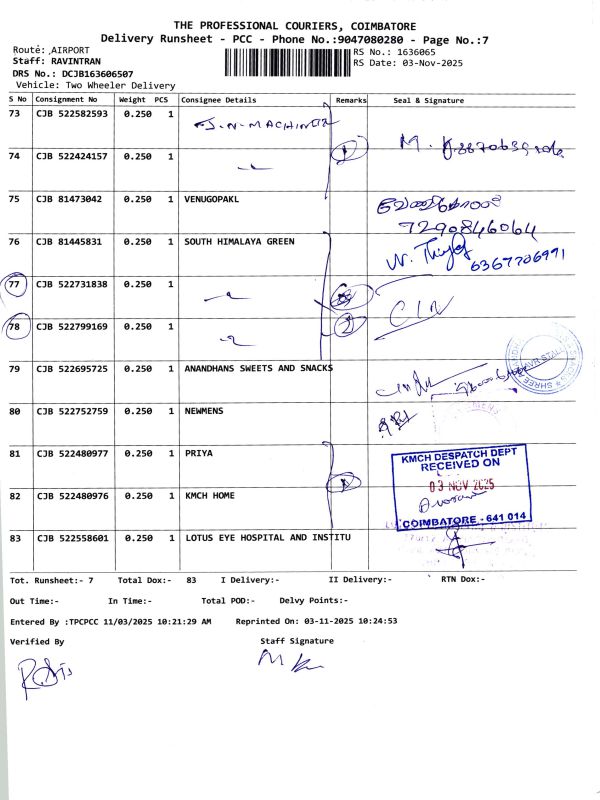 THE PROFESSIONAL COURIERS, COIMBATORE
Delivery Runsheet - PCC - Phone No.:9047080280 - Page No.:7
Route: ,AIRPORT
RS No.: 1636065
Staff: RAVINTRAN
RS Date: 03-Nov-2025
DRS No.: DCJB163606507
Vehicle: Two Wheeler Delivery
S No Consignment No Weight PCS Consignee Details Remarks Seal & Signature
73 CJB 522582593 0.250 1
74 CJB 522424157 0.250 1
75 CJB 81473042 0.250 1 VENUGOPAKL
7290846064
76 CJB 81445831 0.250 1 SOUTH HIMALAYA GREEN
6367706991
77 CJB 522731838 0.250 1
78 CJB 522799169 0.250 1
79 CJB 522695725 0.250 1 ANANDHANS SWEETS AND SNACKS
80 CJB 522752759 0.250 1 NEWMENS
81 CJB 522480977 0.250 1 PRIYA
KMCH DESPATCH DEPT
RECEIVED ON
03 NOV 2025
COIMBATORE - 641 014
82 CJB 522480976 0.250 1 KMCH HOME
83 CJB 522558601 0.250 1 LOTUS EYE HOSPITAL AND INSTITU
Tot. Runsheet:- 7 Total Dox:- 83 I Delivery:- II Delivery:- RTN Dox:-
Out Time:- In Time:- Total POD:- Delvy Points:-
Entered By :TPCPCC 11/03/2025 10:21:29 AM Reprinted On: 03-11-2025 10:24:53
Verified By Staff Signature